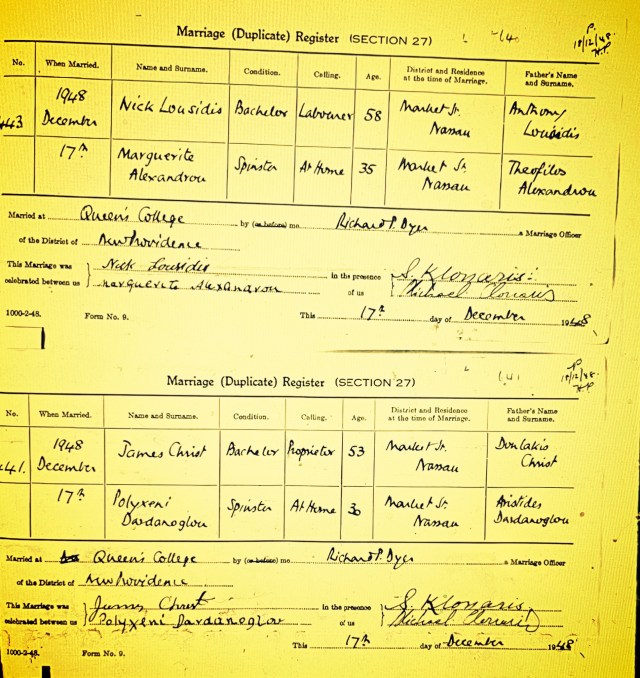 Marriage (Duplicate) Register (SECTION 27)
P.
18/12/48.
H.P.
No. When Married. Name and Surname. Condition. Calling. Age. District and Residence at the time of Marriage. Father's Name and Surname.
443 1948 December Nick Lousidis Bachelor Labourer 58 Market St. Nassau Anthony Lousidis
17th Marguerite Alexandrou Spinster At Home 35 Market St. Nassau Theofilos Alexandrou
Married at Queen's College by (or before) me Richard P. Dyer a Marriage Officer
of the District of New Providence
This Marriage was celebrated between us Nick Lousidis in the presence of us S. Klonaris
Marguerite Alexandrou Michael Klonaris
1000-2-48. Form No. 9. This 17th day of December 1948
Marriage (Duplicate) Register (SECTION 27)
P.
18/12/48.
H.P.
No. When Married. Name and Surname. Condition. Calling. Age. District and Residence at the time of Marriage. Father's Name and Surname.
441. 1948 December James Christ Bachelor Proprietor 53 Market St. Nassau Christ
17th Polyxeni Dardanoglou Spinster At Home 30 Market St. Nassau Aristides Dardanoglou
Married at Queen's College by (or before) me Richard P. Dyer a Marriage Officer
of the District of New Providence
This Marriage was celebrated between us James Christ in the presence of us S. Klonaris
Polyxeni Dardanoglou Michael Klonaris
1000-2-48. Form No. 9. This 17th day of December 1948